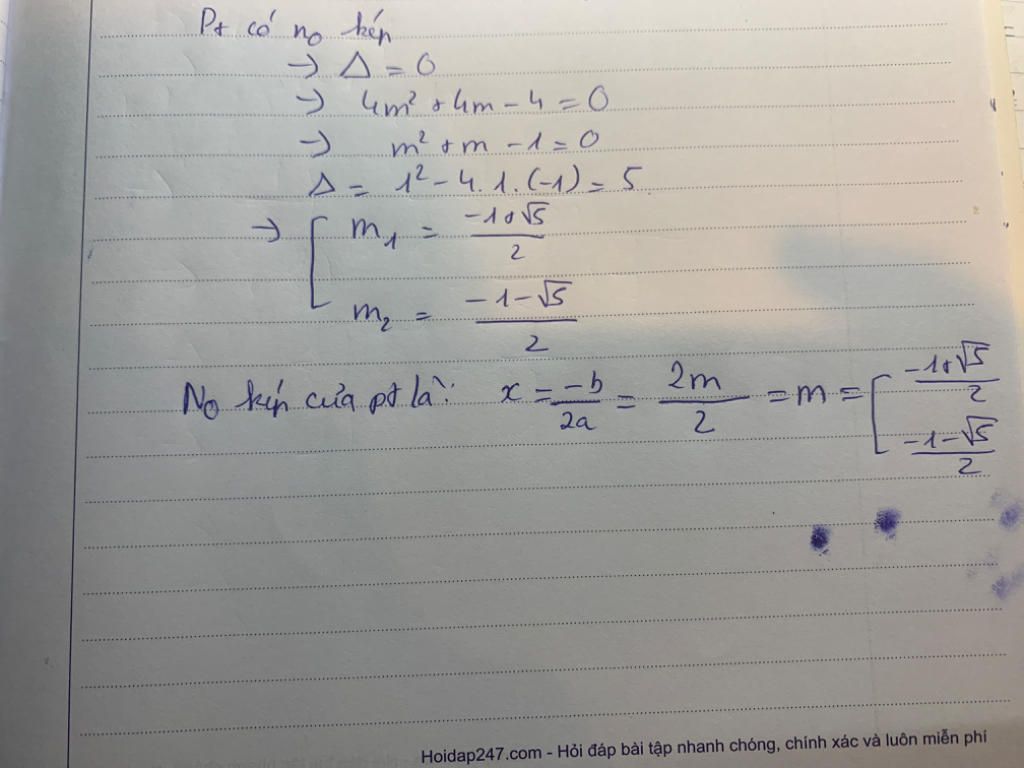 Pt có no kép
→ Δ = 0
→ 4m² + 4m - 4 = 0
→ m² + m - 1 = 0
Δ = 1² - 4.1.(-1) = 5
→ [ m₁ = (-1+√5)/2
m₂ = (-1-√5)/2
No kép của pt là: x = -b/2a = 2m/2 = m = [ (-1+√5)/2
(-1-√5)/2
Hoidap247.com - Hỏi đáp bài tập nhanh chóng, chính xác và luôn miễn phí